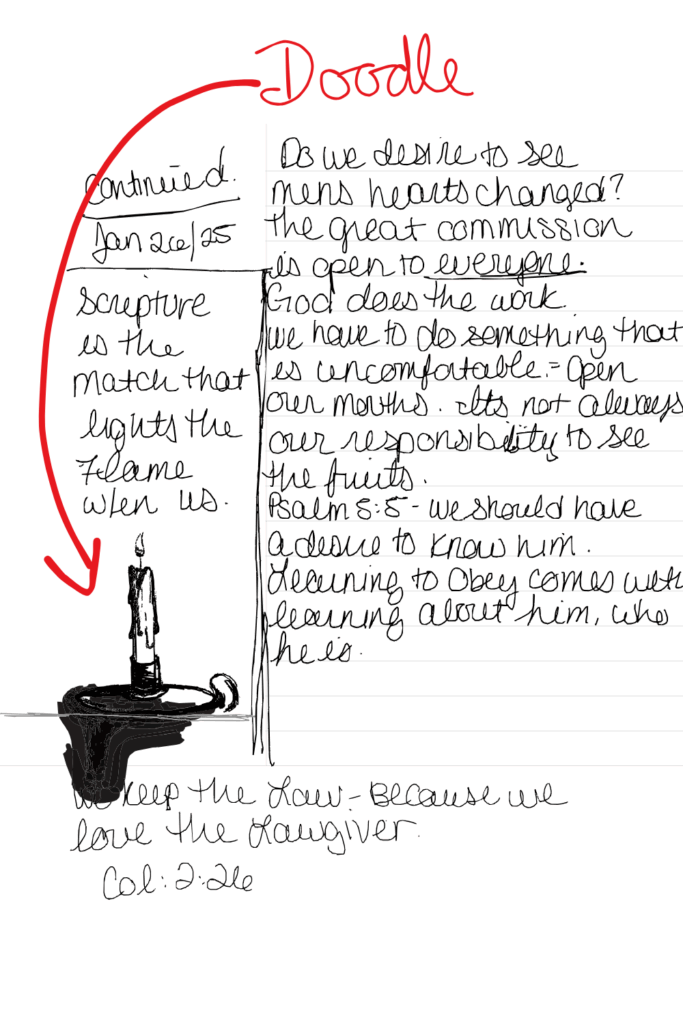 Doodle
continued.
Jan 26/25
Scripture
is the
match that
lights the
flame
w/en us.
Do we desire to see
mens hearts changed?
The great commission
is open to everyone.
God does the work.
we have to do something that
is uncomfortable. = Open
our mouths. Its not always
our responsibility to see
the fruits.
Psalm 5:5 - we should have
a desire to know him.
Learning to Obey comes with
learning about him, who
he is.
We keep the Law - Because we
love the Lawgiver.
Col: 2:26